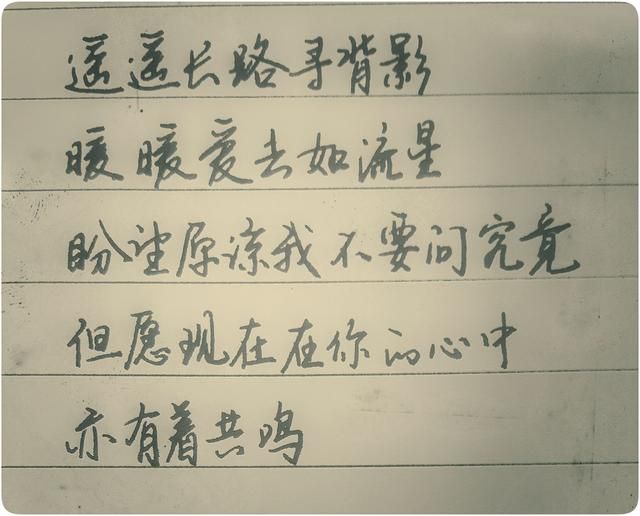 遥遥长路寻背影
暖暖爱去如流星
盼望原谅我不要问究竟
但愿现在在你的心中
亦有着共鸣